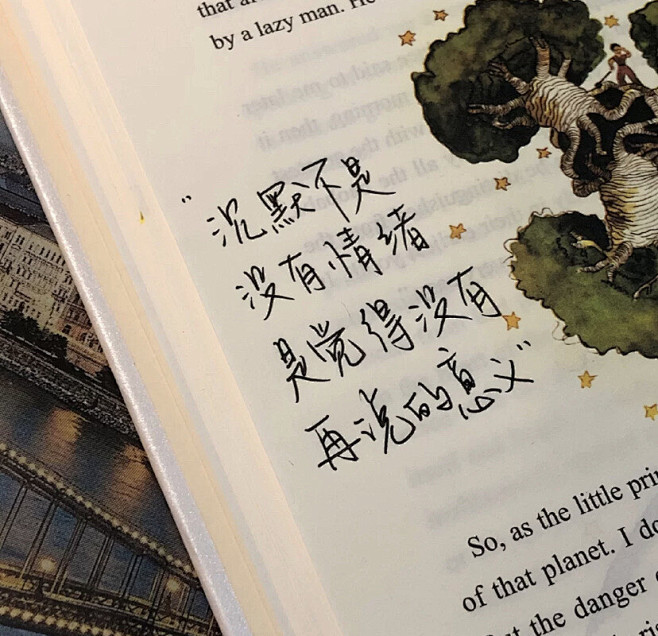 that a
by a lazy man. He
"沉默不是
没有情绪
是觉得没有
再说的意义"
So, as the little prin
of that planet. I do
the danger